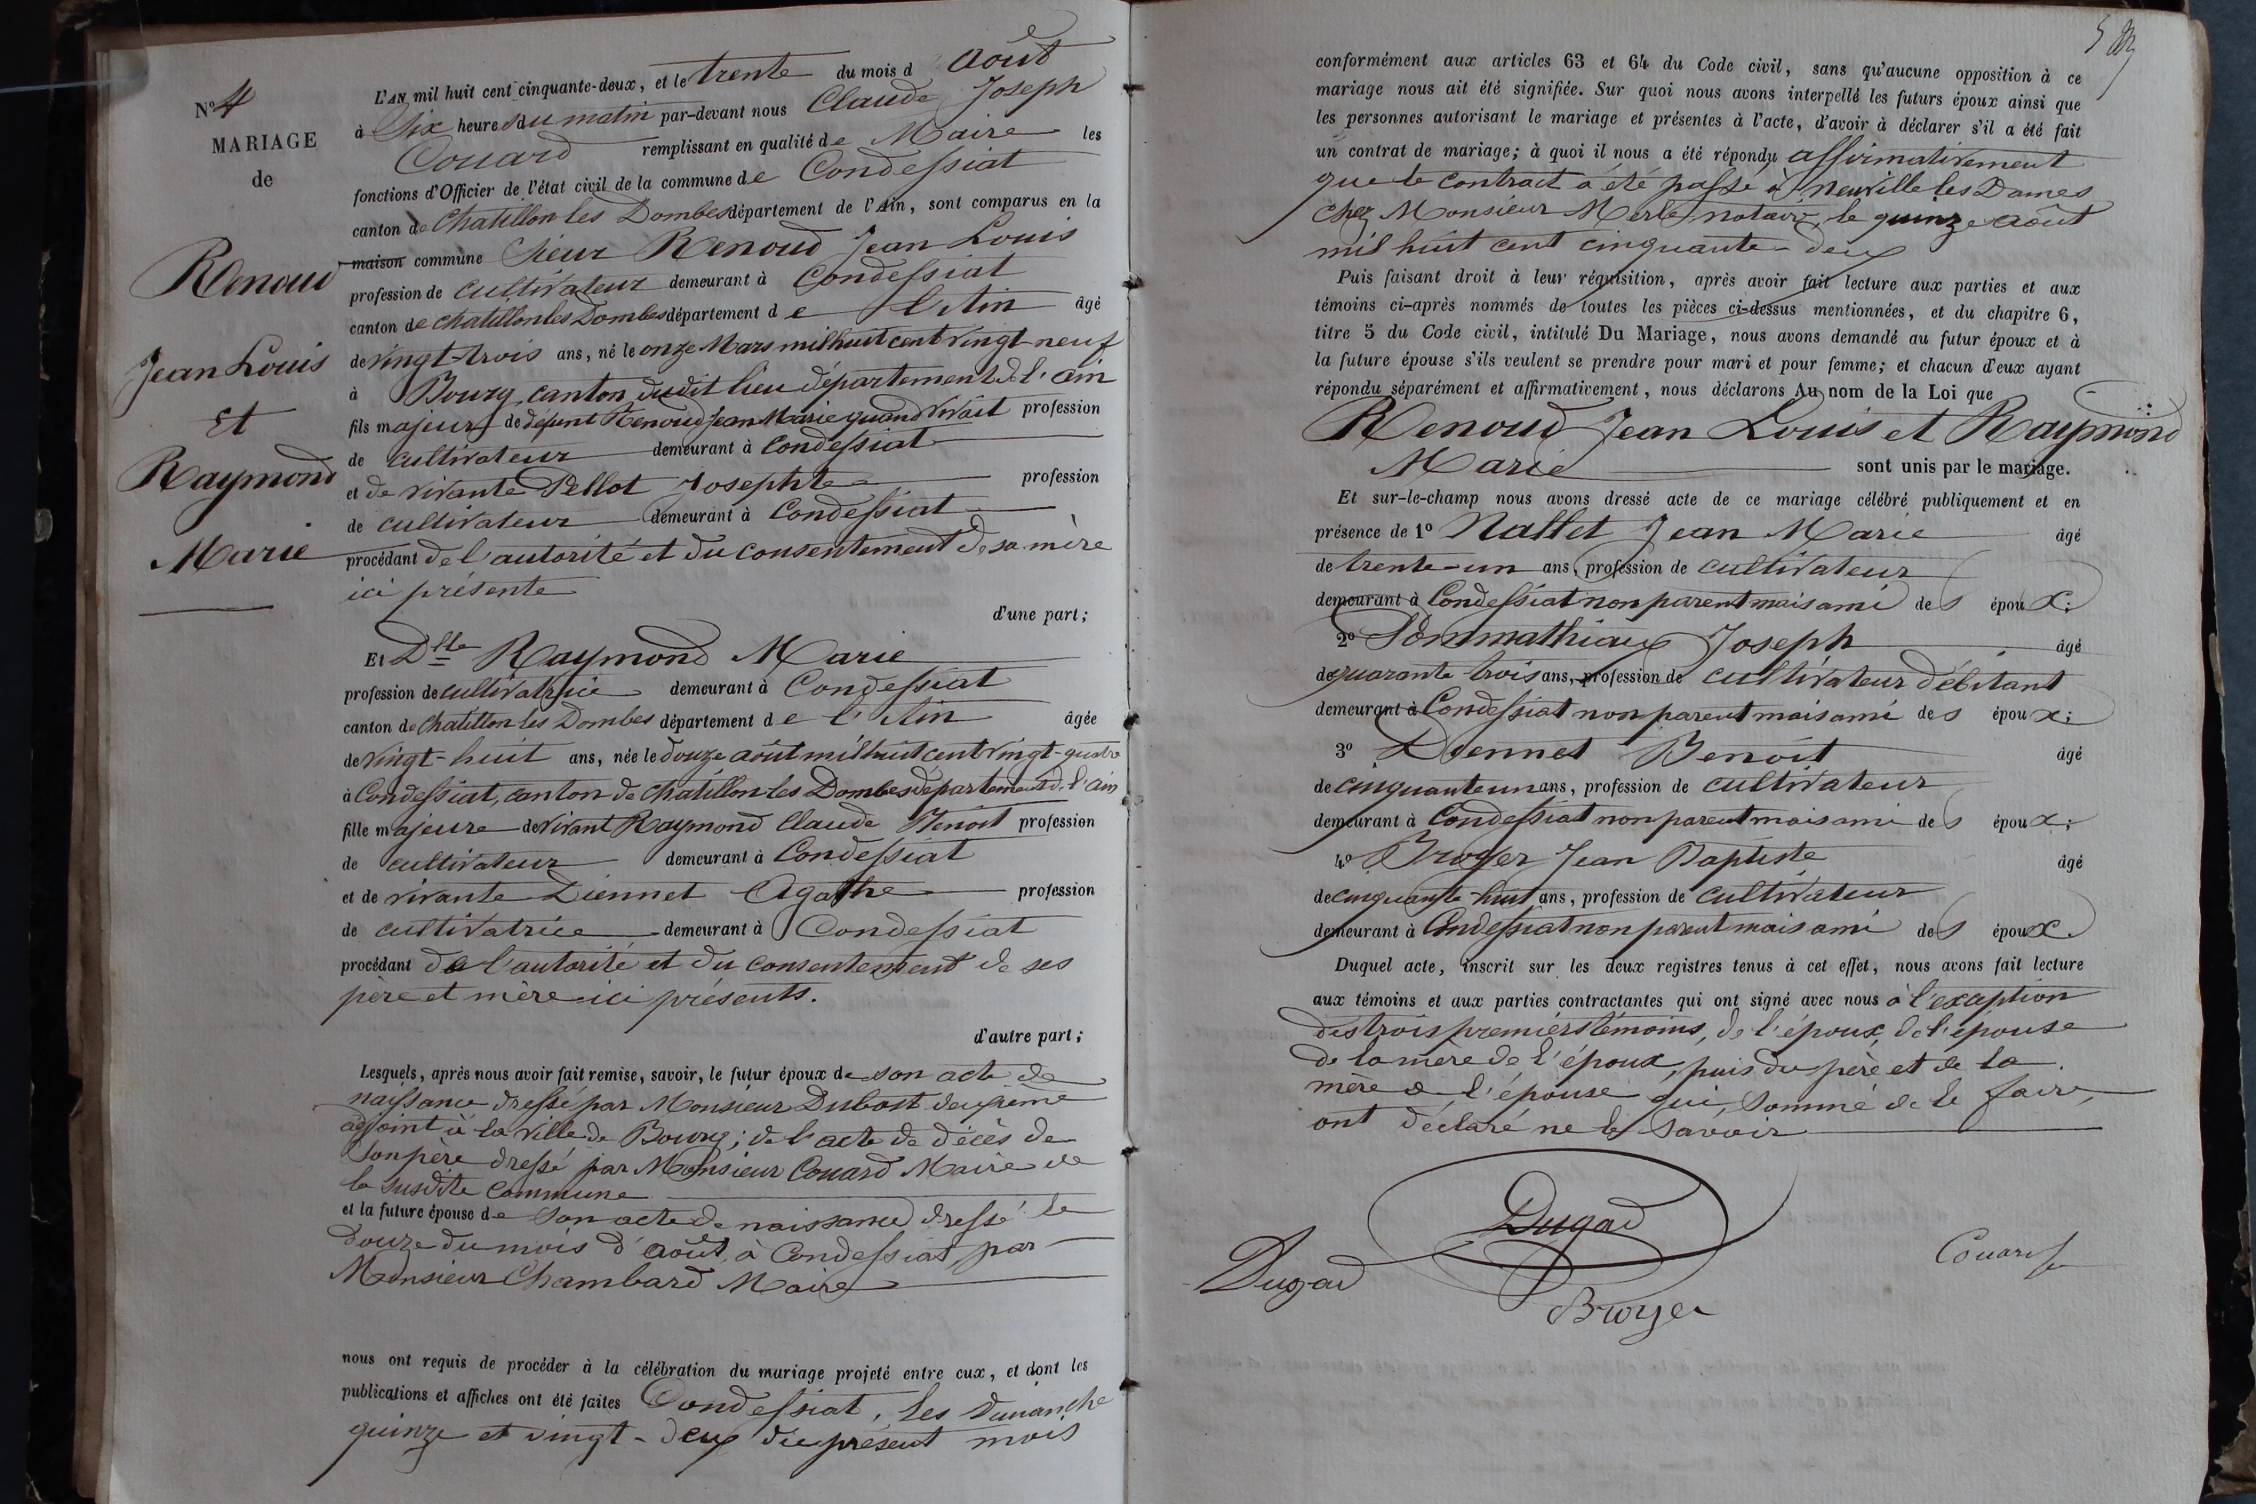 N° 4
MARIAGE
de
Renoud
Jean Louis
et
Raymond
Marie
L'AN mil huit cent cinquante-deux, et le trente du mois d'août
à six heures du matin par-devant nous Claude Joseph
Couard remplissant en qualité de Maire les
fonctions d'Officier de l'état civil de la commune de Condessiat
canton de Chatillon les Dombes département de l'Ain, sont comparus en la
maison commune Sieur Renoud Jean Louis
profession de cultivateur demeurant à Condessiat
canton de chatillon les Dombes département de l'Ain âgé
de vingt-trois ans, né le onze Mars mil huit cent vingt-neuf
à Bourg, canton dudit lieu département de l'ain
fils majeur de défunt Renoud Jean Marie quand vivait profession
de cultivateur demeurant à Condessiat
et de vivante Pellot Josephte profession
de cultivateur demeurant à Condessiat
procédant de l'autorité et du consentement de sa mère
ici présente
d'une part;
Et Dlle Raymond Marie
profession de cultivatrice demeurant à Condessiat
canton de Chatillon les Dombes département de l'Ain âgée
de vingt-huit ans, née le douze août mil huit cent vingt-quatre
à Condessiat, canton de chatillon-les Dombes département de l'ain
fille majeure de vivant Raymond Claude Benoit profession
de cultivateur demeurant à Condessiat
et de vivante Diennet Agathe profession
de cultivatrice demeurant à Condessiat
procédant de l'autorité et du consentement de ses
père et mère ici présents.
d'autre part;
Lesquels, après nous avoir fait remise, savoir, le futur époux de son acte de
naissance dressé par Monsieur Dubost deuxième
adjoint à la ville de Bourg; de l'acte de décès de
son père dressé par Monsieur Couard Maire de
la susdite commune
et la future épouse de son acte de naissance dressé le
douze du mois d'août, à Condessiat par
Monsieur Chambard Maire
nous ont requis de procéder à la célébration du mariage projeté entre eux, et dont les
publications et affiches ont été faites Condessiat, les dimanche
quinze et vingt-deux du présent mois
conformément aux articles 63 et 64 du Code civil, sans qu'aucune opposition à ce
mariage nous ait été signifiée. Sur quoi nous avons interpellé les futurs époux ainsi que
les personnes autorisant le mariage et présentes à l'acte, d'avoir à déclarer s'il a été fait
un contrat de mariage; à quoi il nous a été répondu affirmativement
que le contract a été passé à Neuville les Dames
chez Monsieur Merle notaire, le quinze août
mil huit cent cinquante-deux
Puis faisant droit à leur réquisition, après avoir fait lecture aux parties et aux
témoins ci-après nommés de toutes les pièces ci-dessus mentionnées, et du chapitre 6,
titre 5 du Code civil, intitulé Du Mariage, nous avons demandé au futur époux et à
la future épouse s'ils veulent se prendre pour mari et pour femme; et chacun d'eux ayant
répondu séparément et affirmativement, nous déclarons Au nom de la Loi que
Renoud Jean Louis et Raymond
Marie sont unis par le mariage.
Et sur-le-champ nous avons dressé acte de ce mariage célébré publiquement et en
présence de 1° Nallet Jean Marie âgé
de trente-un ans, profession de cultivateur
demeurant à Condessiat non parent mais ami des époux;
2° Pommathiaux Joseph âgé
de quarante trois ans, profession de cultivateur débitant
demeurant à Condessiat non parent mais ami des époux;
3° Diennet Benoit âgé
de cinquante un ans, profession de cultivateur
demeurant à Condessiat non parent mais ami des époux;
4° Broyer Jean Baptiste âgé
de cinquante-huit ans, profession de cultivateur
demeurant à Condessiat non parent mais ami des époux.
Duquel acte, inscrit sur les deux registres tenus à cet effet, nous avons fait lecture
aux témoins et aux parties contractantes qui ont signé avec nous à l'exception
des trois premiers témoins, de l'époux, de l'épouse
de la mère de l'époux, puis du père et de la
mère de l'épouse qui, sommé de le faire,
ont déclaré ne le savoir
Dugad
Dugad
Couard
Broyer